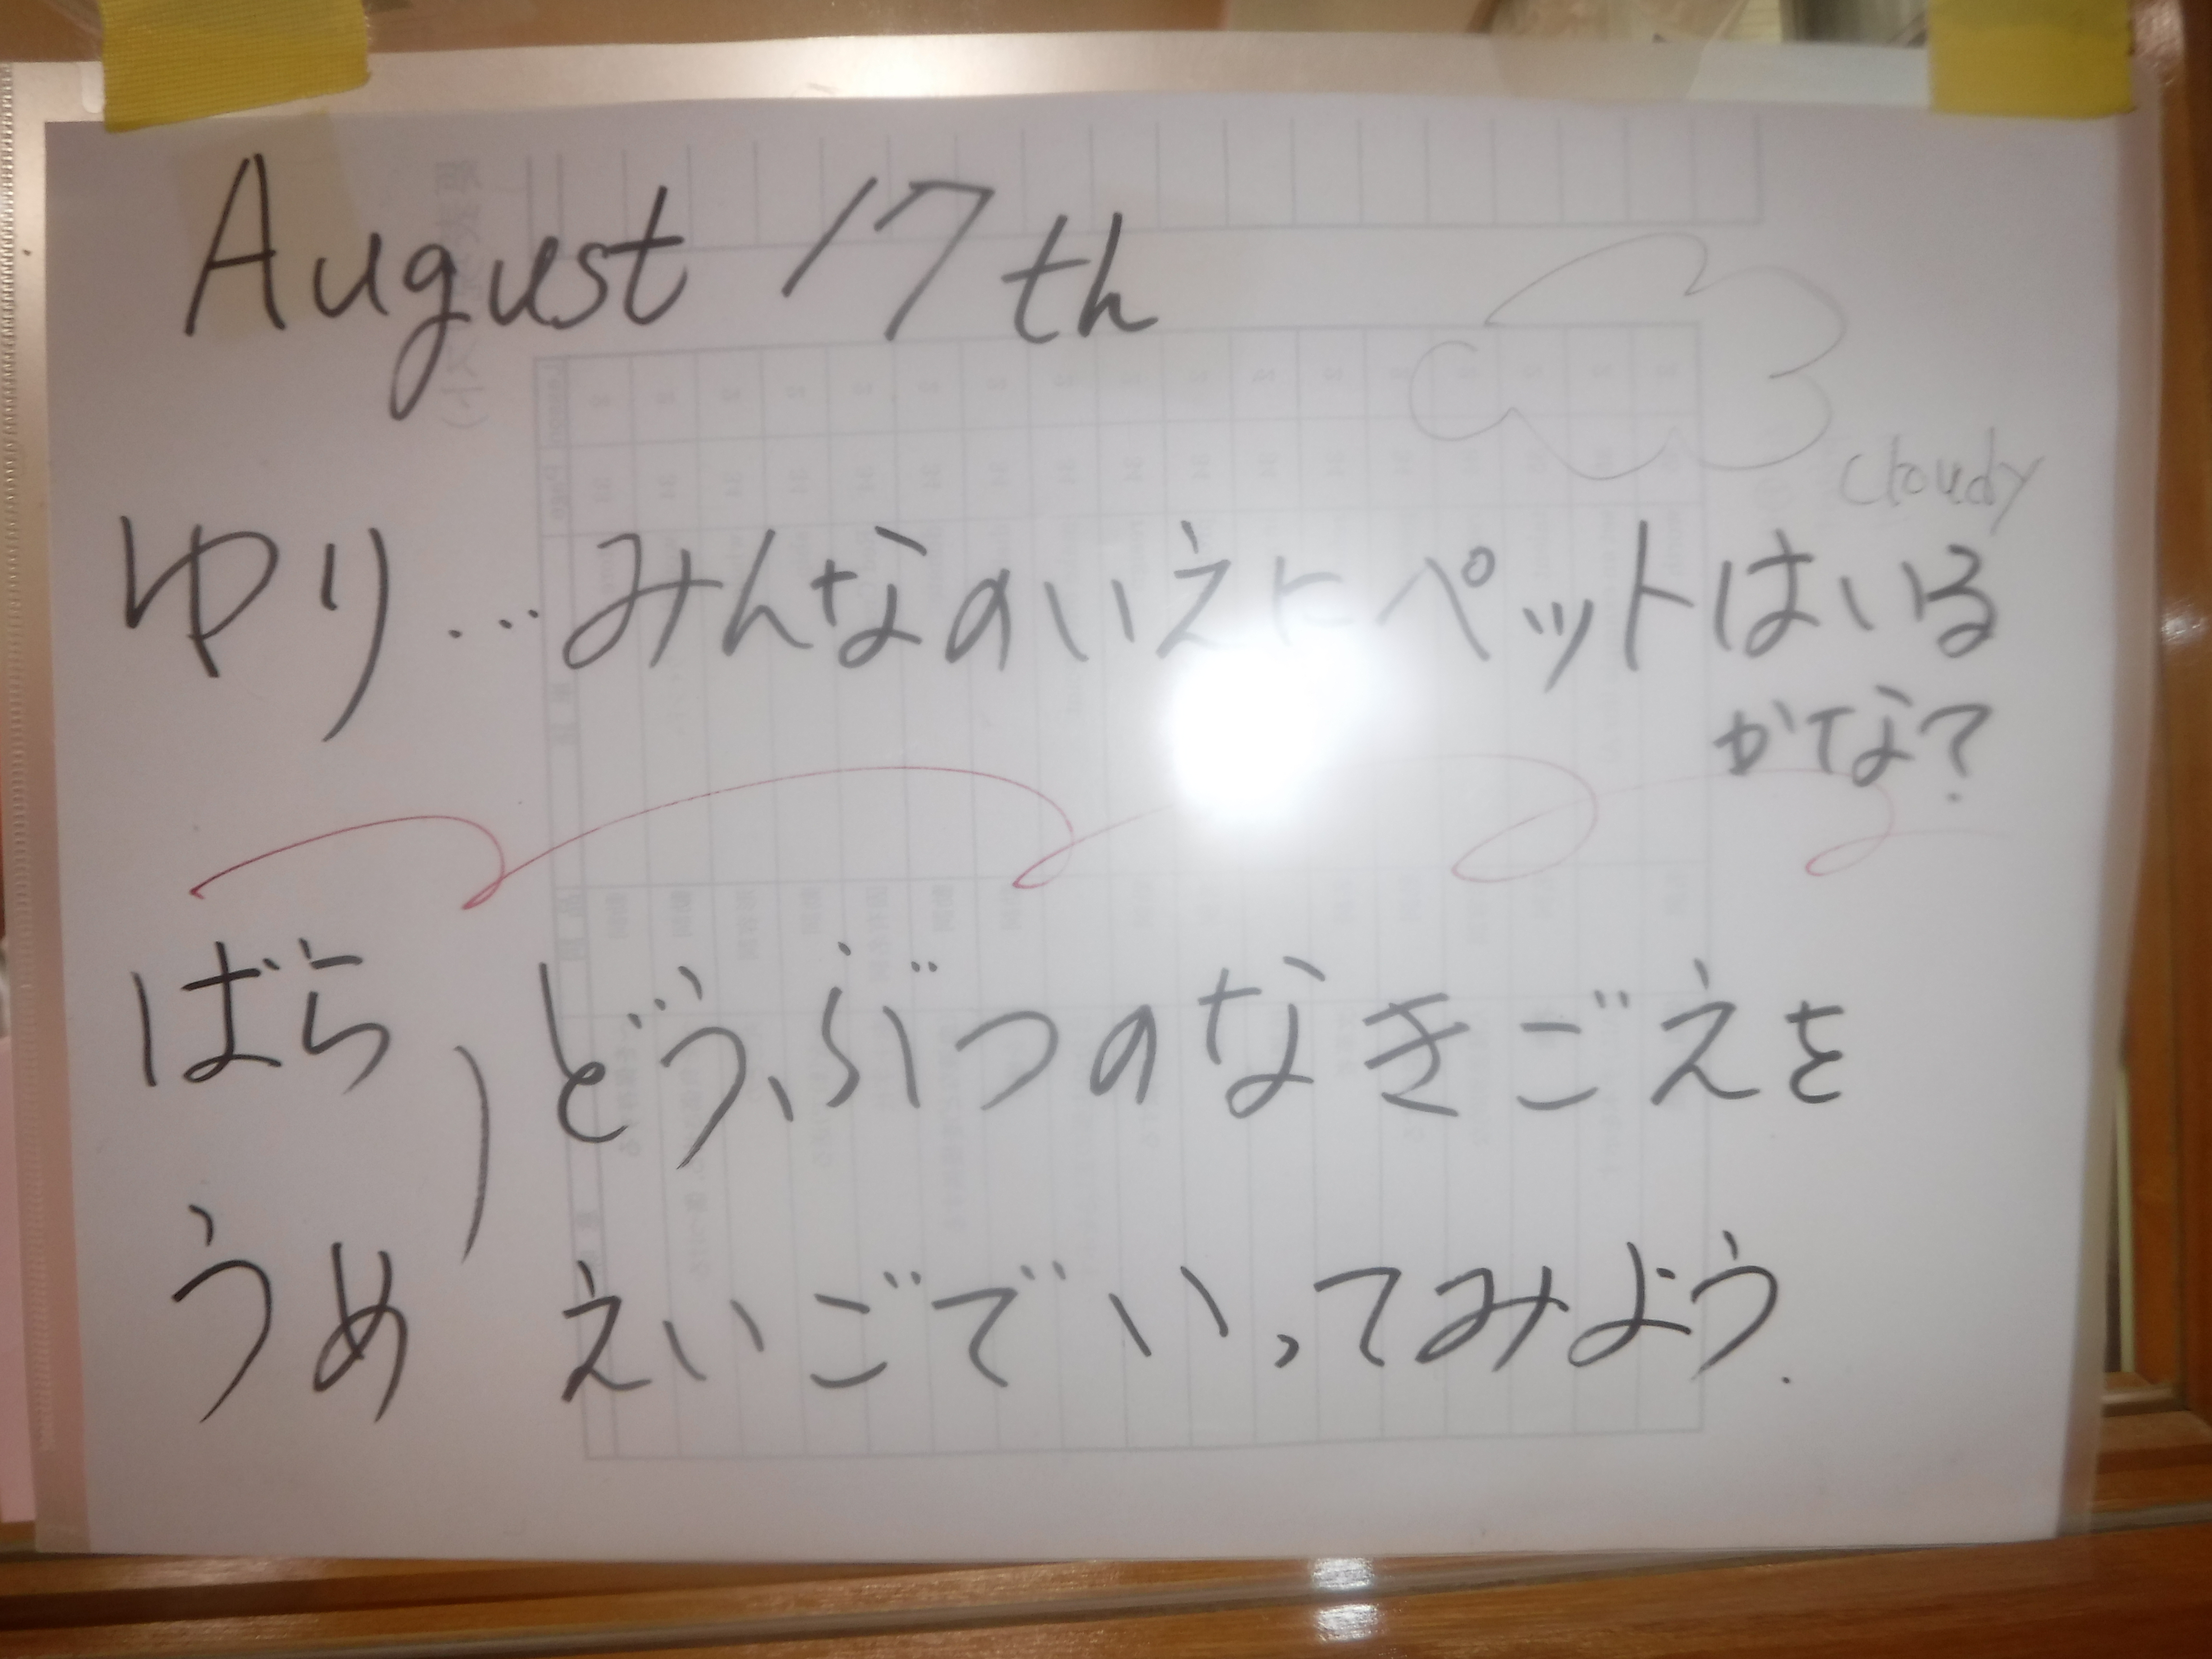 August 17th
cloudy
ゆり…みんなのいえにペットはいる
かな？
ばら
どうぶつのなきごえを
うめ
えいごでいってみよう.